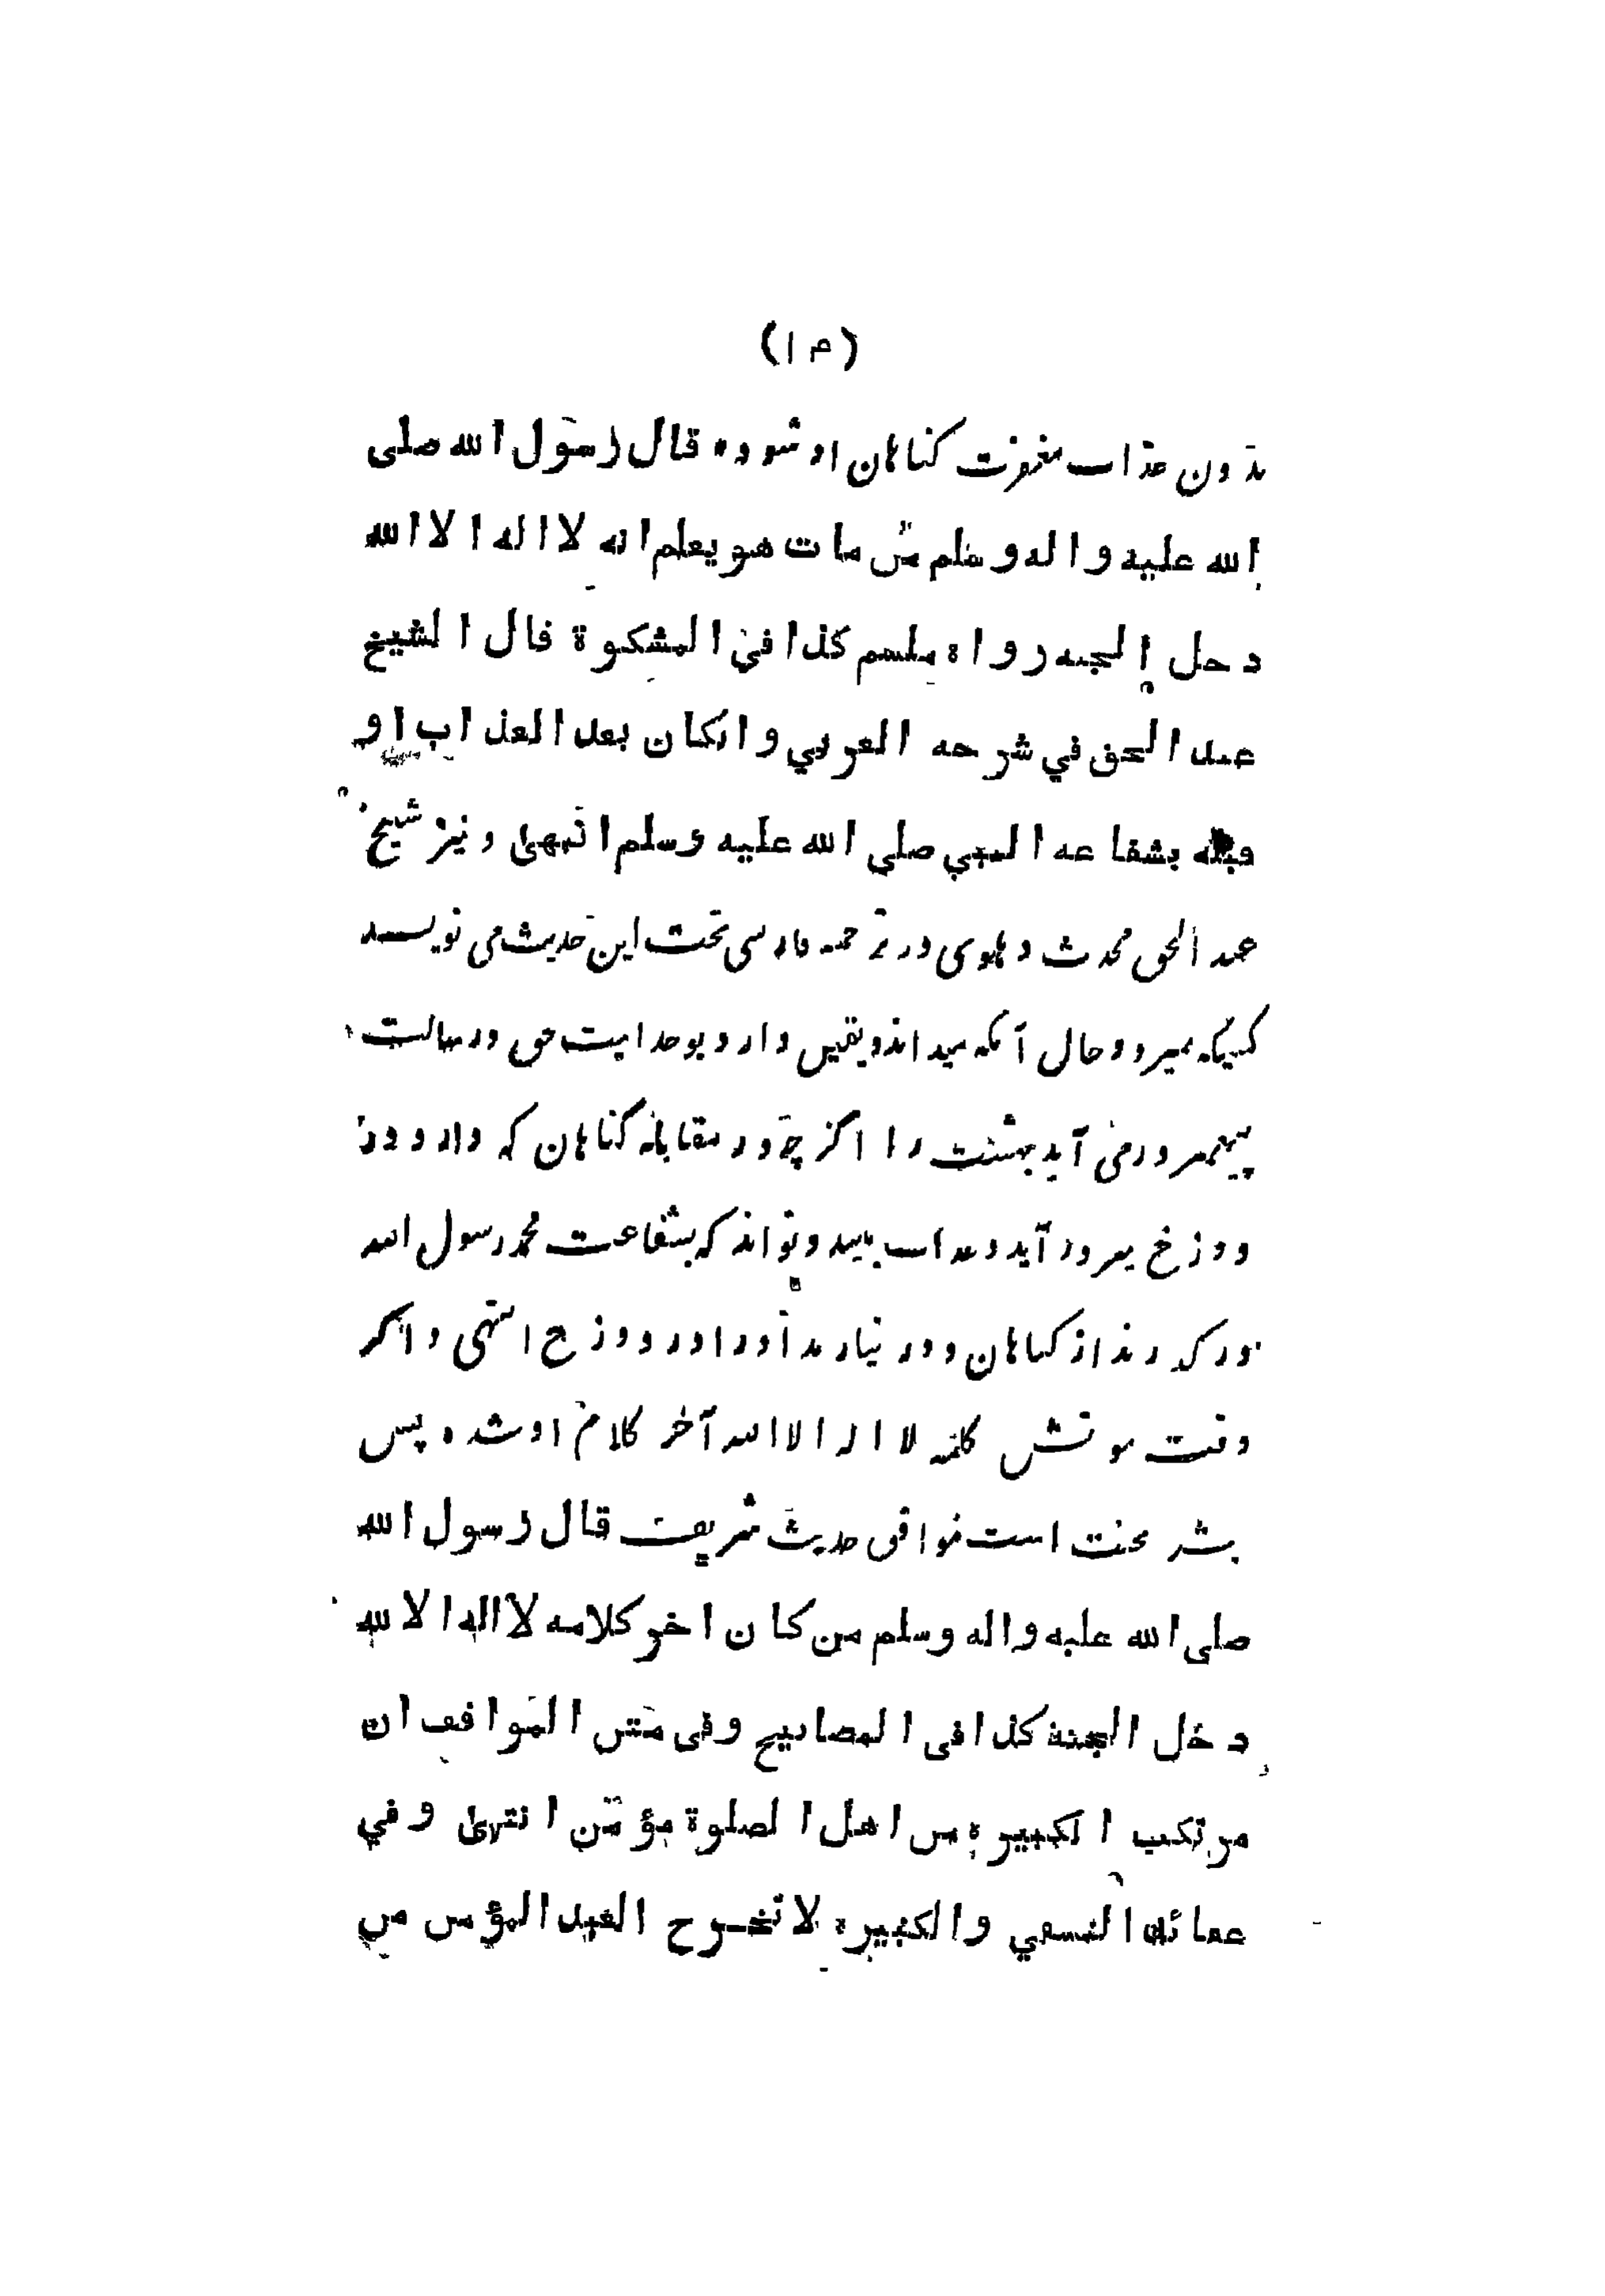 (۱۴)
بدون عذاب مغفرت گناهان او شود ۰ قال رسول الله صلی
الله علیه و اله و سلم من مات هو یعلم انه لا اله الا الله
دخل الجنه رواه مسلم کذا فی المشکوة قال الشیخ
عبد الحق في شرحه العربي و انکان بعد العذاب او
قبله بشفاعه النبي صلی الله علیه وسلم انتهی و نیز شیخ
عبد الحق محدث دهلوی در ترجمه فارسی تحت این حدیث می نویسد
کسیکه بمیرد و حالی آنکه میداند و یقین دارد بوحدانیت حق و رسالت
پیغمبر در می آید بهشت را اگر چه در مقابله گناهان که دارد در
دوزخ میرود آید و عذاب یابد و تواند که بشفاعت محمد رسول الله
در گذرند از گناهان و در نیارند او را در دوزخ انتهی و اگر
وقت موتش کلمه لا اله الا الله آخر کلام او شده پس
بشر بجنت است موافق حدیث شریف قال رسول الله
صلی الله علیه و اله وسلم من کان اخر کلامه لا اله الا لله
دخل الجنة کذا فی المصابیح وفی متن المواقف ان
مرتکب الکبیره من اهل الصلوة مؤمن انتهی و في
عقائد النسفي والکبیره لا تخرج العبد المؤمن من